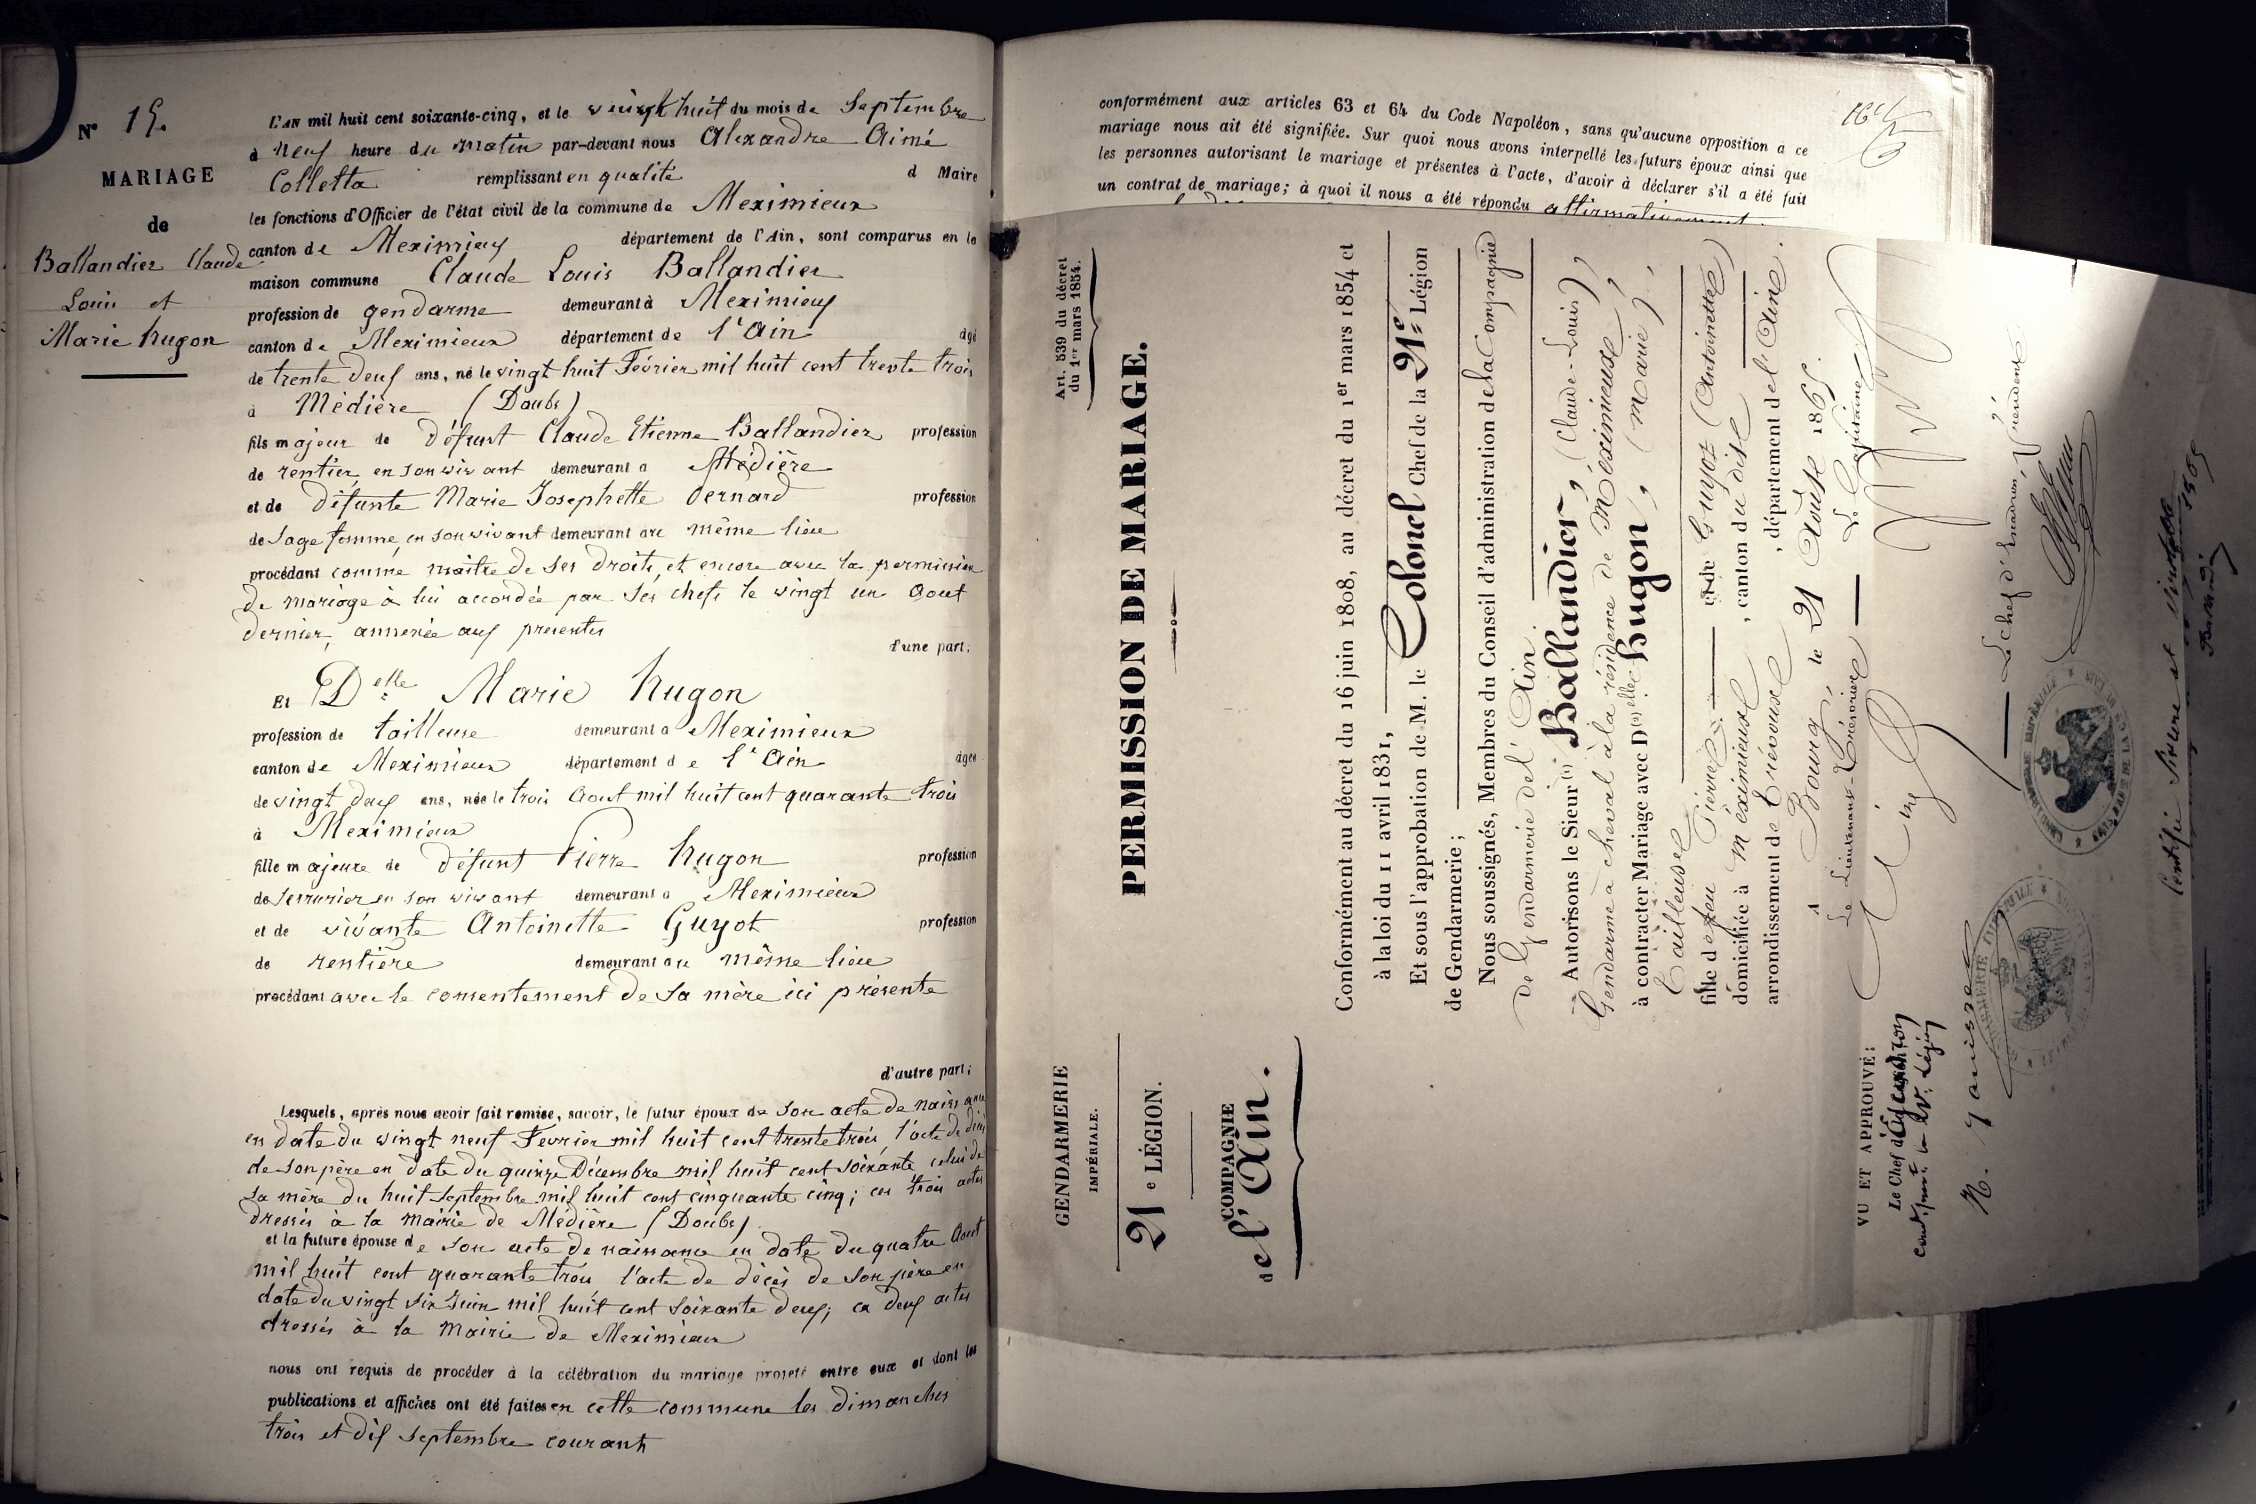 N° 15.
MARIAGE
de
Ballandier Claude
Louis et
Marie hugon
L'AN mil huit cent soixante-cinq, et le vingt huit du mois de Septembre
à neuf heure du matin par-devant nous Alexandre Aimé
Colletta remplissant en qualité d Maire
les fonctions d'Officier de l'état civil de la commune de Meximieux
canton de Meximieux département de l'Ain, sont comparus en la
maison commune Claude Louis Ballandier
profession de gendarme demeurant à Meximieux
canton de Meximieux département de l'Ain âgé
de trente deux ans, né le vingt huit Février mil huit cent trente trois
à Médière (Doubs)
fils majeur de défunt Claude Etienne Ballandier profession
de rentier en son vivant demeurant à Médière
et de défunte Marie Josephette Bernard profession
de Sage femme en son vivant demeurant au même lieu
procédant comme maître de ses droits, et encore avec la permission
de mariage à lui accordée par ses chefs le vingt un Aout
dernier, annexée aux présentes
d'une part;
Et Delle Marie hugon
profession de tailleuse demeurant à Meximieux
canton de Meximieux département de l'Ain âgée
de vingt deux ans, née le trois Aout mil huit cent quarante trois
à Meximieux
fille majeure de défunt Pierre hugon profession
de Serrurier en son vivant demeurant à Meximieux
et de vivante Antoinette Guyot profession
de rentière demeurant au même lieu
procédant avec le consentement de sa mère ici présente
d'autre part;
Lesquels, après nous avoir fait remise, savoir, le futur époux de son acte de naissance
en date du vingt neuf Fevrier mil huit cent trente trois, l'acte de décès
de son père en date du quinze Décembre mil huit cent soixante celui de
sa mère du huit Septembre mil huit cent cinquante cinq; ces trois actes
dressés à la mairie de Médière (Doubs)
et la future épouse de son acte de naissance en date du quatre Aout
mil huit cent quarante trois l'acte de décès de son père en
date du vingt six Juin mil huit cent soixante deux; ces deux actes
dressés à la Mairie de Meximieux
nous ont requis de procéder à la célébration du mariage projeté entre eux et dont les
publications et affiches ont été faites en cette commune les dimanches
trois et dix septembre courant
conformément aux articles 63 et 64 du Code Napoléon, sans qu'aucune opposition a ce
mariage nous ait été signifiée. Sur quoi nous avons interpellé les futurs époux ainsi que
les personnes autorisant le mariage et présentes à l'acte, d'avoir à déclarer s'il a été fait
un contrat de mariage; à quoi il nous a été répondu affirmativement
GENDARMERIE
IMPÉRIALE.
21e LÉGION.
COMPAGNIE
de l'Ain.
Art. 539 du décret
du 1er mars 1854.
PERMISSION DE MARIAGE.
Conformément au décret du 16 juin 1808, au décret du 1er mars 1854 et
à la loi du 11 avril 1831,
Et sous l'approbation de M. le Colonel Chef de la 21e Légion
de Gendarmerie;
Nous soussignés, Membres du Conseil d'administration de la Compagnie
de Gendarmerie de l'Ain.
Autorisons le Sieur (1) Ballandier, (Claude-Louis),
Gendarme à cheval à la résidence de Méximieux,
à contracter Mariage avec D(1)elle Hugon, (Marie),
Tailleuse
fille de feu Pierre et de Guyoz (Antoinette)
domiciliée à Méximieux, canton du dit
arrondissement de Trévoux, département de l'Ain.
A Bourg, le 21 Août 1865
Le Lieutenant-Trésorier
Le Capitaine
Le Chef d'Escadron, Président
VU ET APPROUVÉ:
Le Chef d'Escadron
Légion
Certifié sincère et véritable